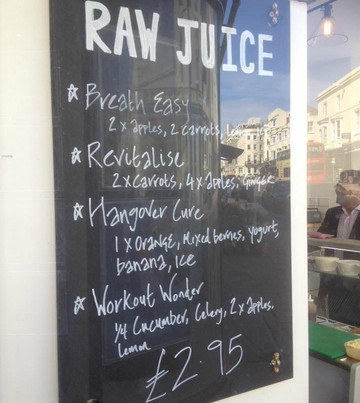 RAW JUICE
☆ Breath Easy
2 x apples, 2 carrots,
☆ Revitalise
2 x carrots, 4 x apples, Ginger
☆ Hangover Cure
1 x orange, Mixed berries, yogurt,
banana, ice
☆ Workout Wonder
1/4 Cucumber, Celery, 2 x apples.
lemon
£2.95